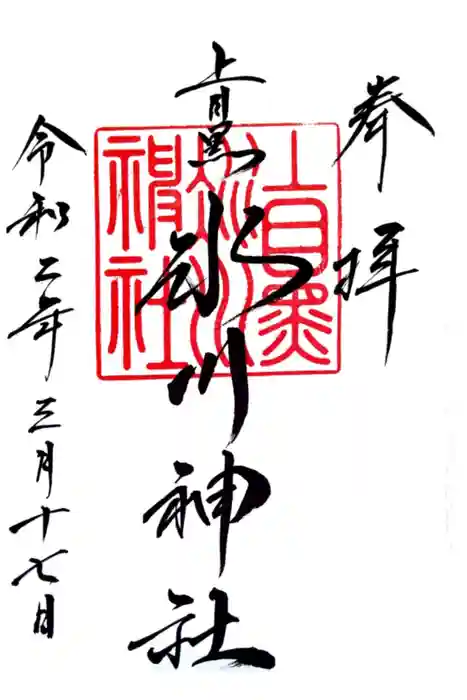 奉拝
上目黒氷川神社
上目黒氷川神社
令和二年三月十七日